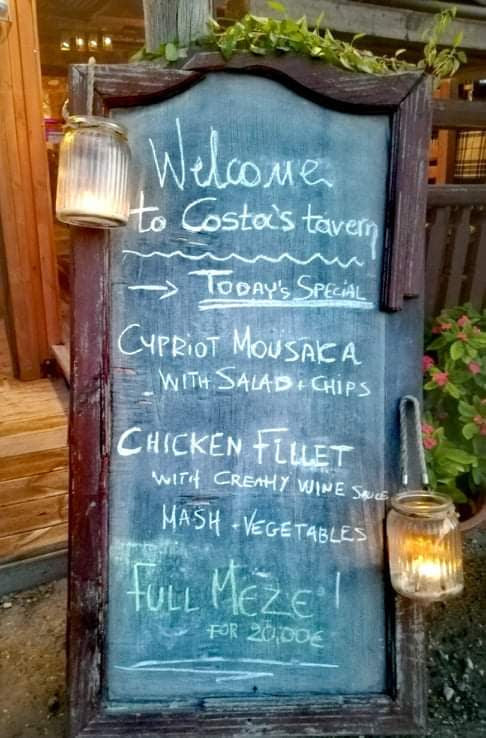 Welcome
to Costa's tavern
→ TODAY'S SPECIAL
CYPRIOT MOUSAKA
WITH SALAD + CHIPS
CHICKEN FILLET
WITH CREAMY WINE SAUCE
MASH + VEGETABLES
FULL MEZE!
FOR 20,00€